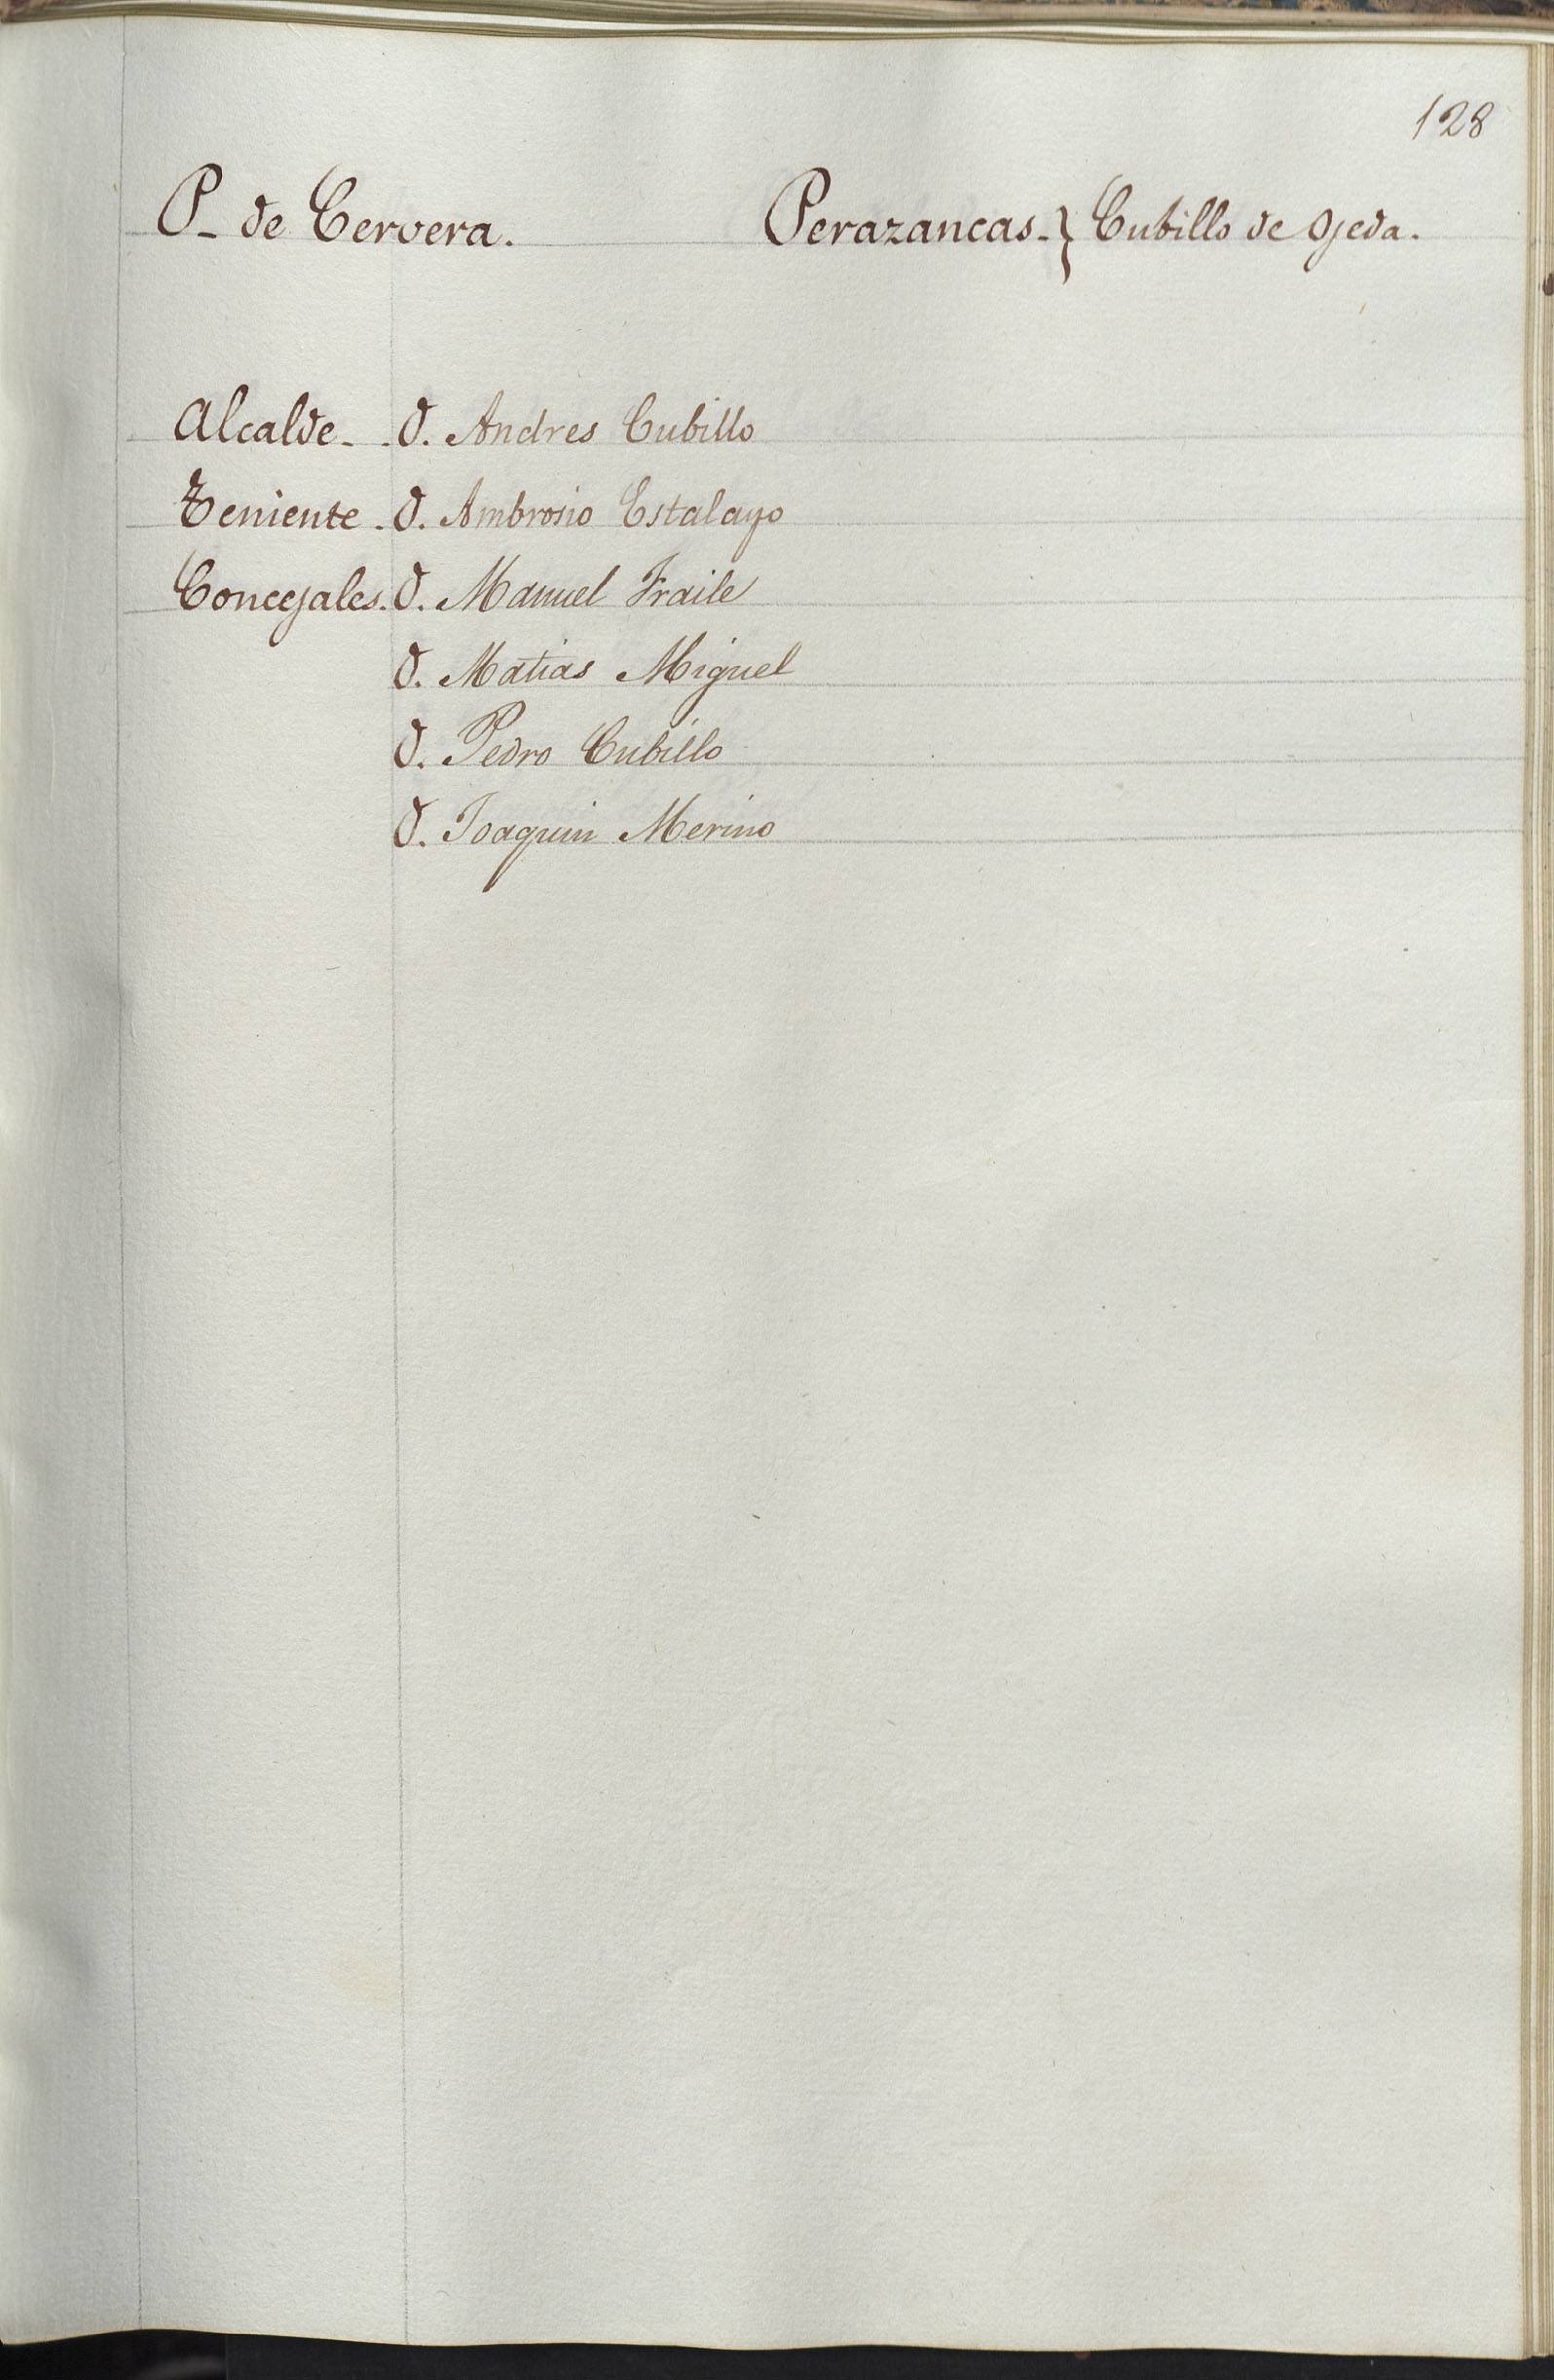 128
P- de Cervera. Perazancas-} Cubillo de Ojeda.
Alcalde- - D. Andres Cubillo
Teniente - D. Ambrosio Estalayo
Concejales. D. Manuel Fraile
D. Matias Miguel
D. Pedro Cubillo
D. Joaquin Merino